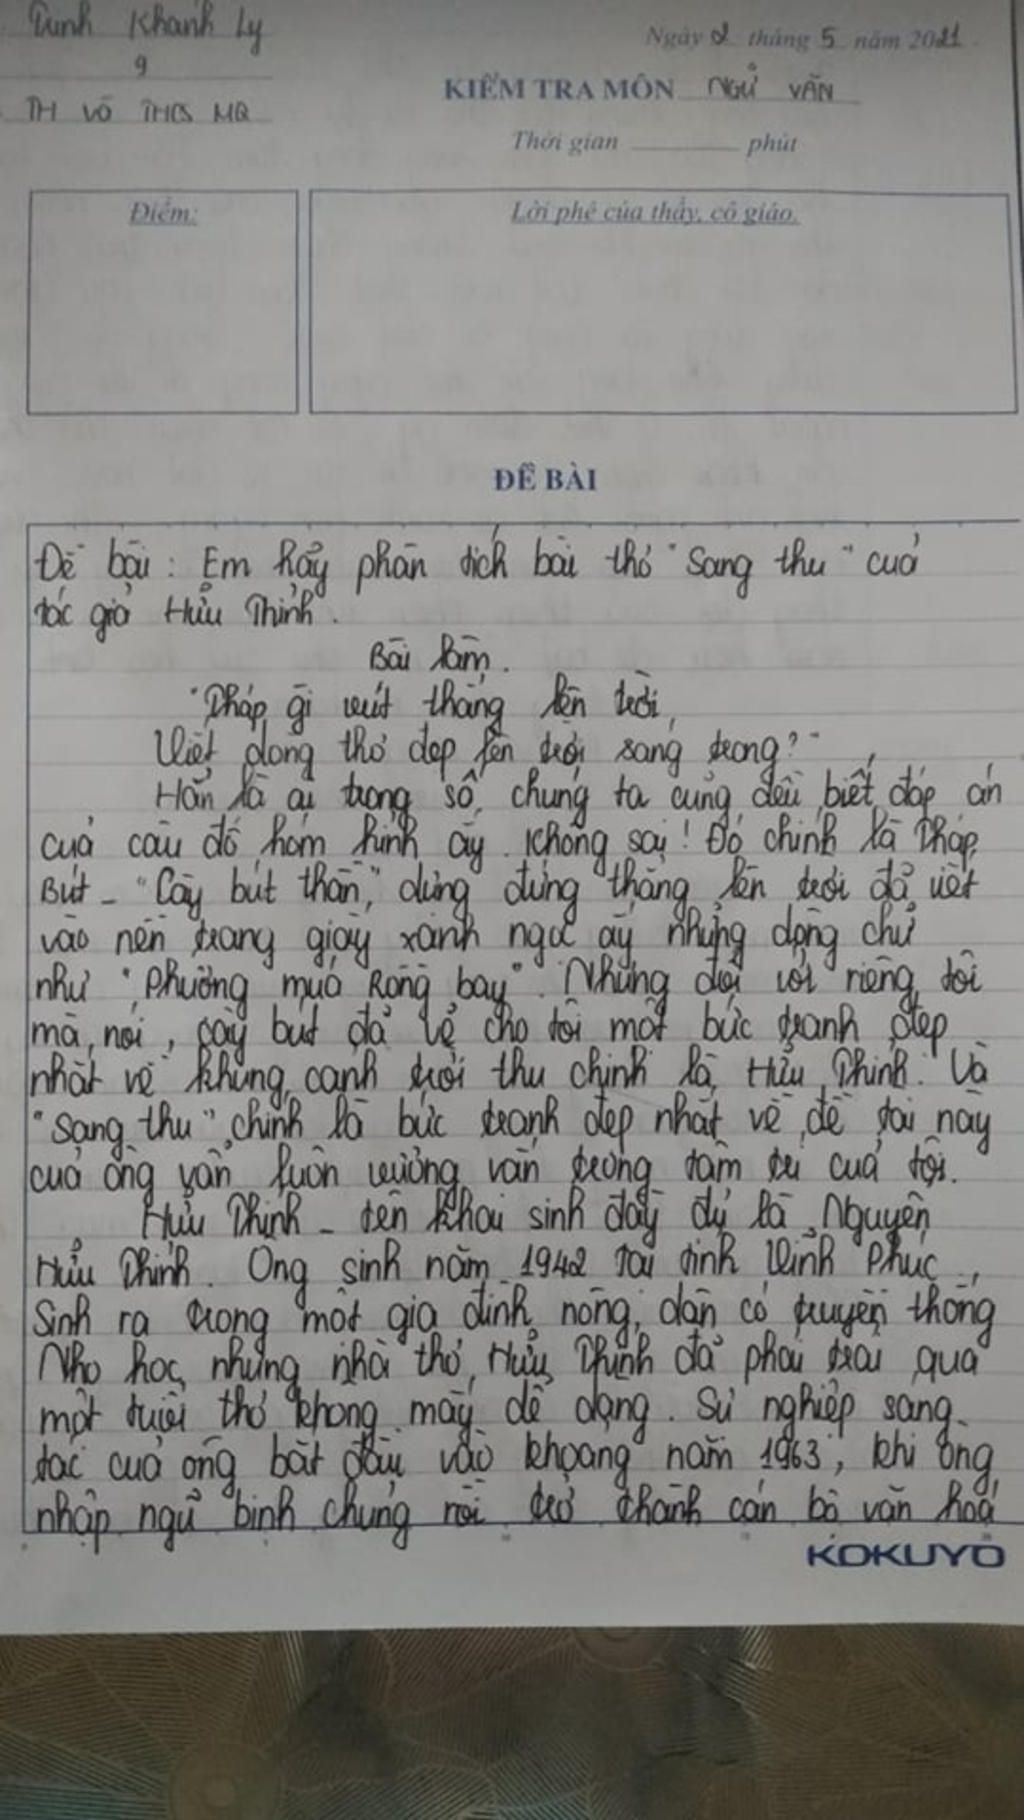 Khánh Ly
Ngày 2 tháng 5 năm 2021
9
KIỂM TRA MÔN NGỮ VĂN
TH VÕ THCS MQ
Thời gian phút
Điểm:
Lời phê của thầy, cô giáo.
ĐỀ BÀI
Đề bài : Em hãy phân tích bài thơ "Sang thu" của
tác giả Hữu Thỉnh.
Bài làm.
"Tháp gì vút thẳng lên trời,
Viết dòng thơ đẹp lên trời sáng trong?"
Hẳn là ai trong số chúng ta cũng đều biết đáp án
của câu đố hóm hỉnh ấy. Không sai! Đó chính là Tháp
Bút - "Cây bút thần" dựng đứng thẳng lên trời đã viết
vào nền trang giấy xanh ngọc ấy những dòng chữ
như "phượng múa Rồng bay". Nhưng đối với riêng tôi
mà nói, cây bút đã vẽ cho tôi một bức tranh đẹp
nhất về khung cảnh trời thu chính là Hữu Thỉnh. Và
"Sang thu" chính là bức tranh đẹp nhất về đề tài này
của ông vẫn luôn vương vấn trong tâm trí của tôi.
Hữu Thỉnh - tên khai sinh đầy đủ là Nguyễn
Hữu Thỉnh. Ông sinh năm 1942 tại tỉnh Vĩnh Phúc.
Sinh ra trong một gia đình nông dân có truyền thống
Nho học nhưng nhà thơ Hữu Thỉnh đã phải trải qua
một tuổi thơ không mấy dễ dàng. Sự nghiệp sáng
tác của ông bắt đầu vào khoảng năm 1963, khi ông
nhập ngũ binh chủng rồi trở thành cán bộ văn hoá
KOKUYO